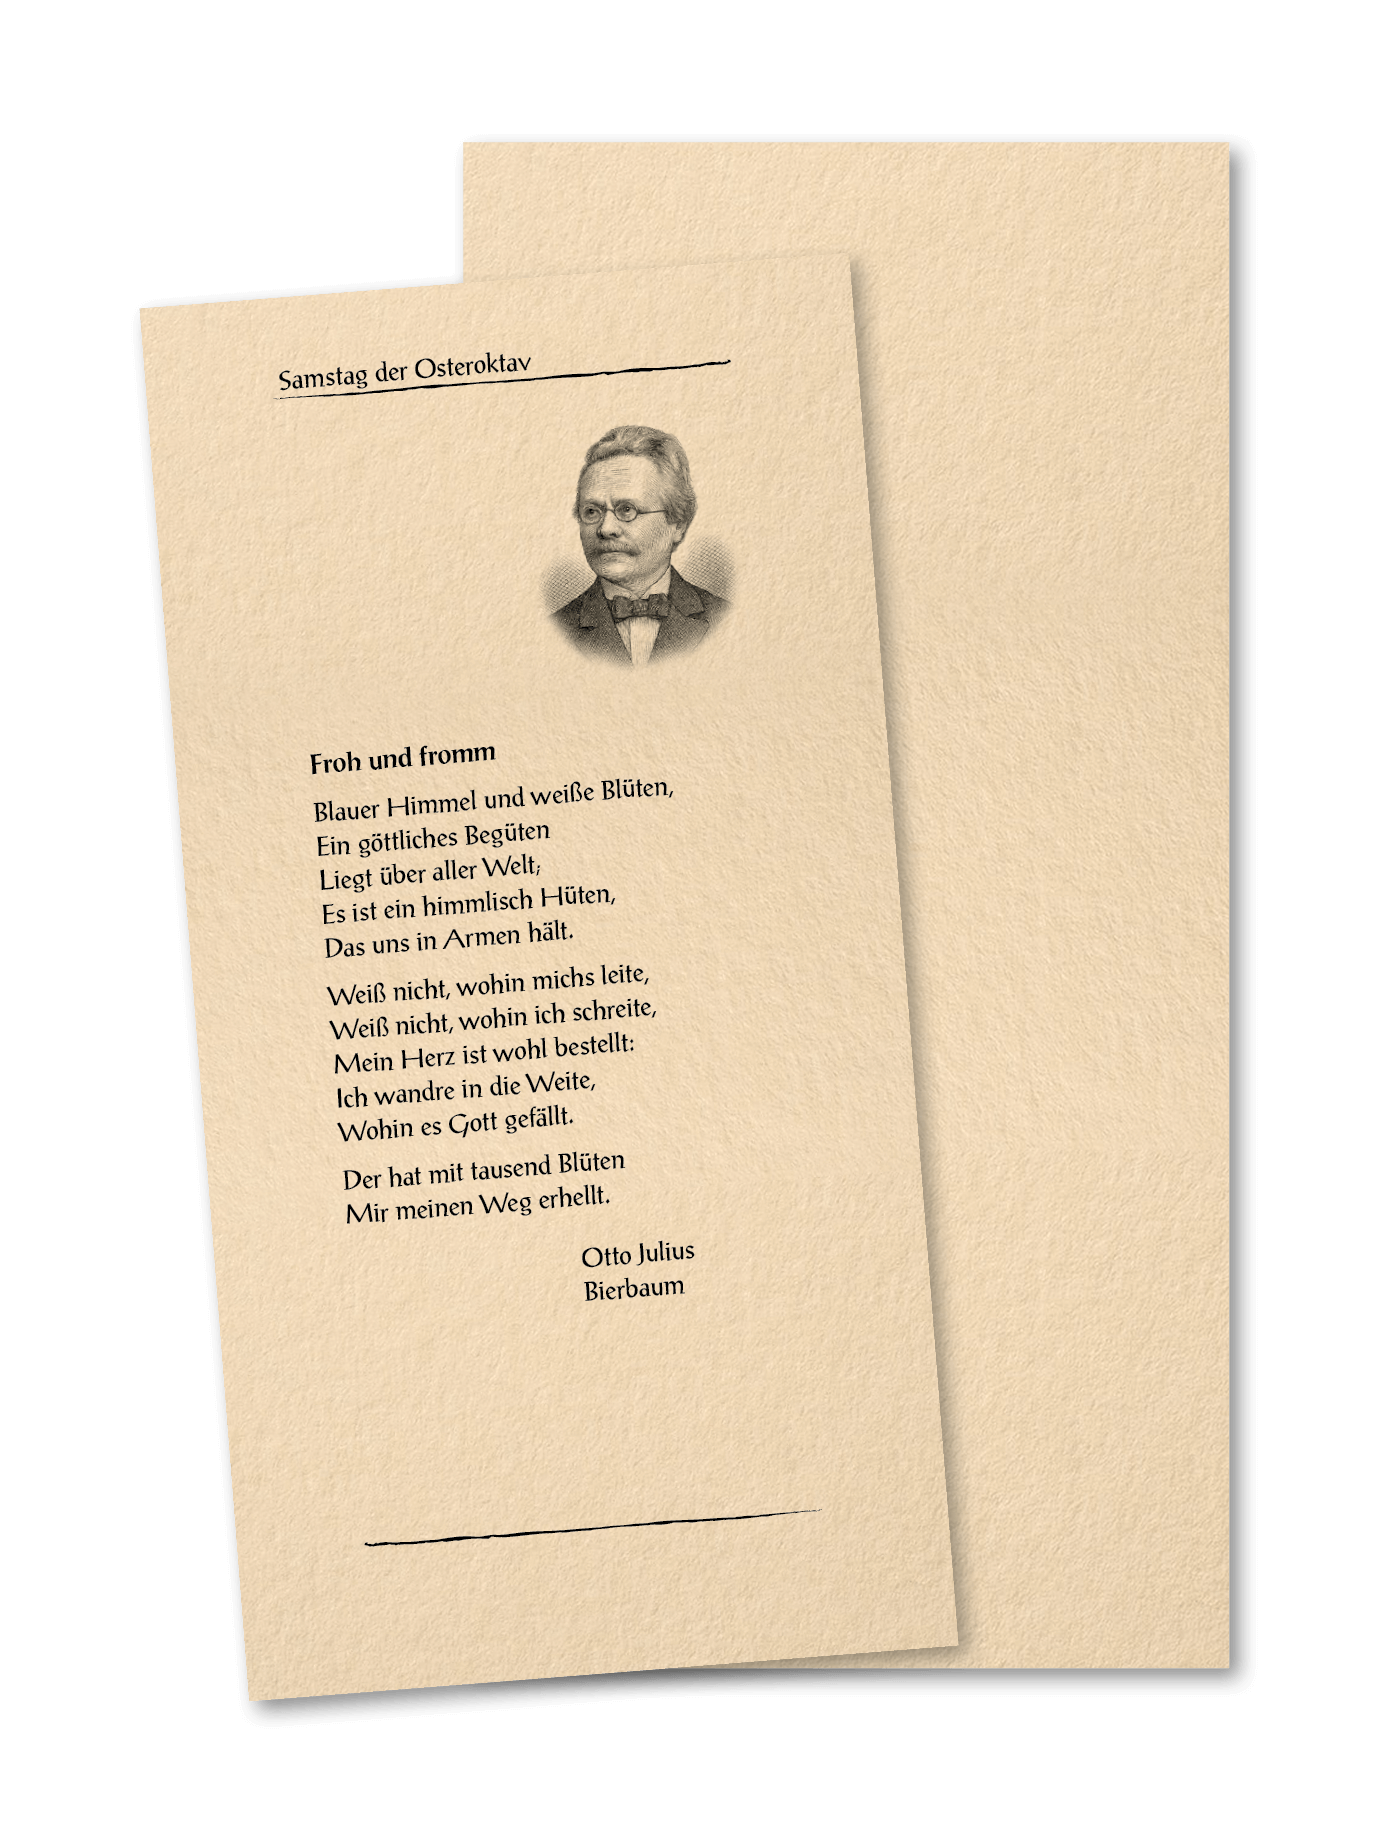 Samstag der Osteroktav
Froh und fromm
Blauer Himmel und weiße Blüten,
Ein göttliches Begüten
Liegt über aller Welt;
Es ist ein himmlisch Hüten,
Das uns in Armen hält.
Weiß nicht, wohin michs leite,
Weiß nicht, wohin ich schreite,
Mein Herz ist wohl bestellt:
Ich wandre in die Weite,
Wohin es Gott gefällt.
Der hat mit tausend Blüten
Mir meinen Weg erhellt.
Otto Julius
Bierbaum